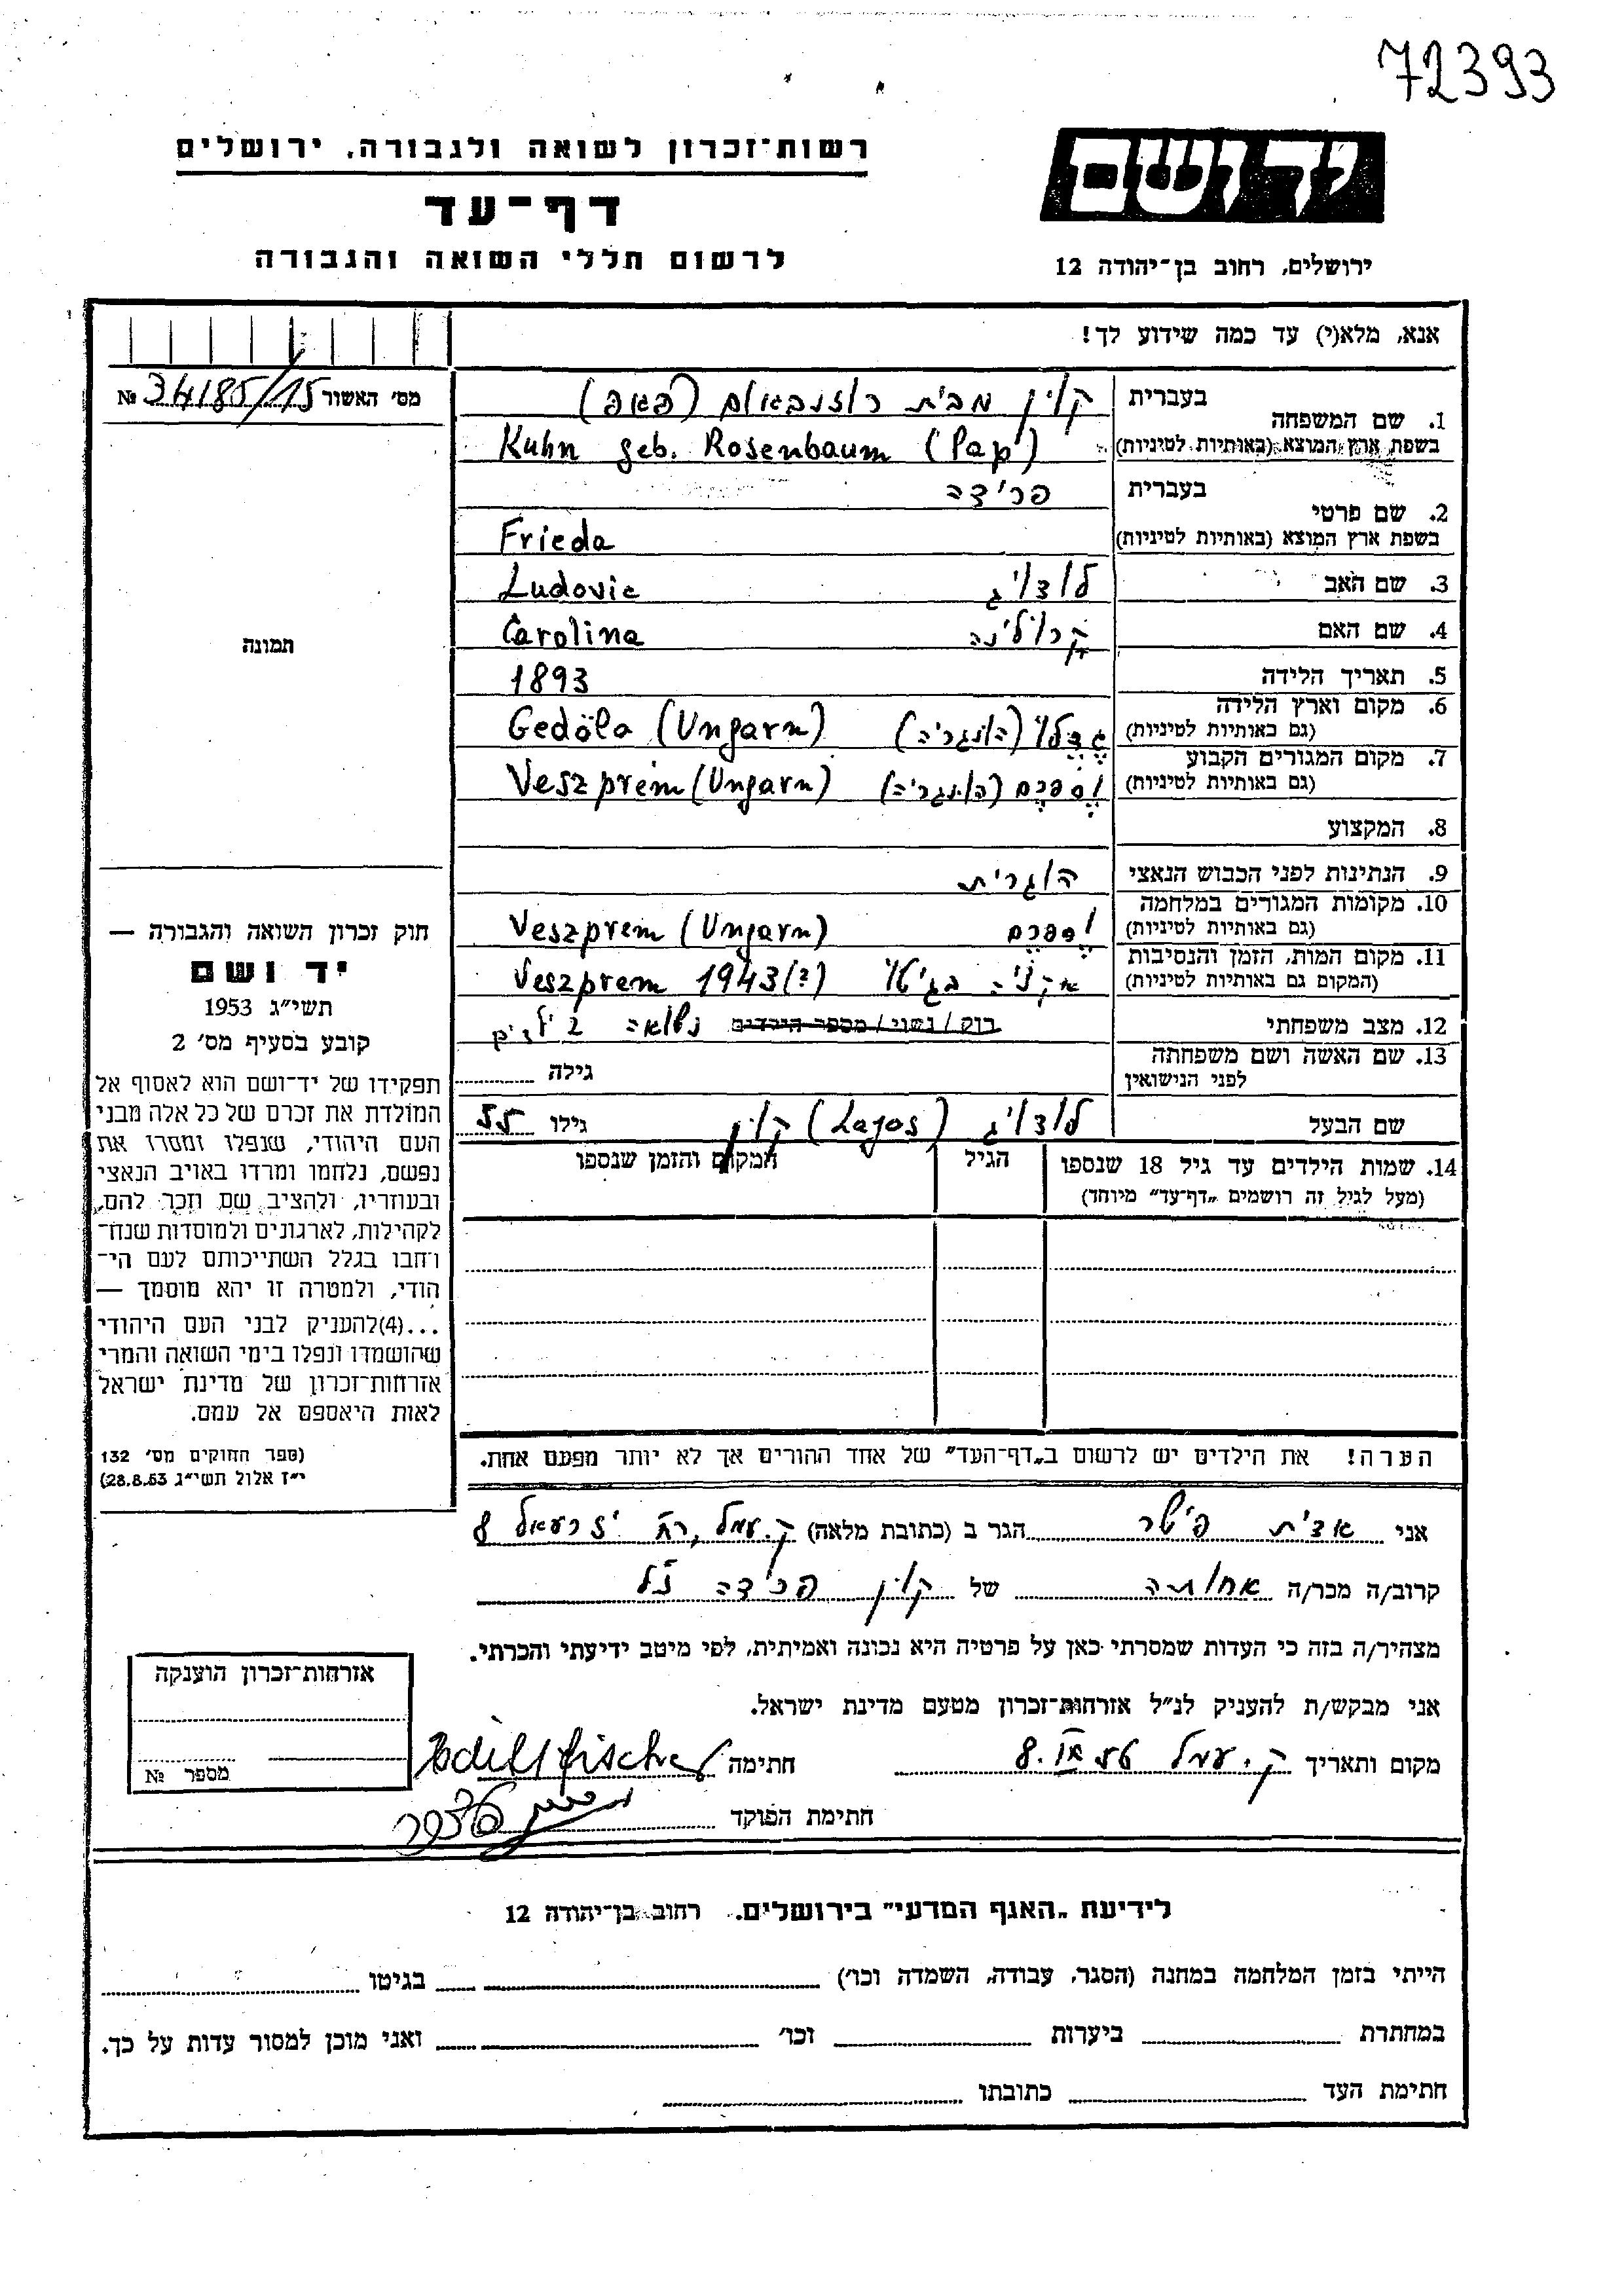 72393
יד ושם
ירושלים, רחוב בן־יהודה 12
רשות־זכרון לשואה ולגבורה, ירושלים
דף־עד
לרשום חללי השואה והגבורה
אנא, מלא(י) עד כמה שידוע לך!
מס׳ האשור 34185/15 №
1. שם המשפחה בעברית קון מבית רוזנבאום (פאפ)
בשפת ארץ המוצא (באותיות לטיניות) Kuhn geb. Rosenbaum (Pap)
2. שם פרטי בעברית פרידה
בשפת ארץ המוצא (באותיות לטיניות) Frieda
3. שם האב לודויג Ludovic
4. שם האם קרולינה Carolina
5. תאריך הלידה 1893
6. מקום וארץ הלידה (גם באותיות לטיניות) (הונגריה) Gedöla (Ungarn)
7. מקום המגורים הקבוע (גם באותיות לטיניות) וספרם (הונגריה) Veszprém (Ungarn)
8. המקצוע
9. הנתינות לפני הכבוש הנאצי הוגרית
10. מקומות המגורים במלחמה (גם באותיות לטיניות) וספרם Veszprém (Ungarn)
11. מקום המות, הזמן והנסיבות (המקום גם באותיות לטיניות) בגיטו Veszprem 1943(?)
12. מצב משפחתי רוק/נשוי/מספר הילדים נשואה 2 ילדים
13. שם האשה ושם משפחתה לפני הנישואין גילה
שם הבעל לודויג (Lajos) קון גילו 55
14. שמות הילדים עד גיל 18 שנספו (מעל לגיל זה רושמים „דף־עד״ מיוחד) הגיל המקום והזמן שנספו
הערה! את הילדים יש לרשום ב„דף־העד״ של אחד ההורים אך לא יותר מפעם אחת.
תמונה
חוק זכרון השואה והגבורה —
יד ושם
תשי״ג 1953
קובע בסעיף מס׳ 2
תפקידו של יד־ושם הוא לאסוף אל
המולדת את זכרם של כל אלה מבני
העם היהודי, שנפלו ומסרו את
נפשם, נלחמו ומרדו באויב הנאצי
ובעוזריו, ולהציב שם וזכר להם,
לקהילות, לארגונים ולמוסדות שנח־
רחבו בגלל השתייכותם לעם הי־
הודי, ולמטרה זו יהא מוסמך —
...(4)להעניק לבני העם היהודי
שהושמדו ונפלו בימי השואה והמרי
אזרחות־זכרון של מדינת ישראל
לאות היאספם אל עמם.
(ספר החוקים מס׳ 132
י״ז אלול תשי״ג 28.8.53)
אני אדית פישר הגר ב (כתובת מלאה) ק. עמל, רח׳ יזרעאל 8
קרוב/ה מכר/ה אחותה של קון פרידה ז״ל
מצהיר/ה בזה כי העדות שמסרתי כאן על פרטיה היא נכונה ואמיתית, לפי מיטב ידיעתי והכרתי.
אני מבקש/ת להעניק לנ״ל אזרחות־זכרון מטעם מדינת ישראל.
מקום ותאריך ק. עמל חתימה Edith Fischer
חתימת הפוקד
אזרחות־זכרון הוענקה
מספר №
לידיעת „האגף המדעי״ בירושלים, רחוב בן־יהודה 12
הייתי בזמן המלחמה במחנה (הסגר, עבודה, השמדה וכו׳) בגיטו
במחתרת ביערות וכו׳ ואני מוכן למסור עדות על כך.
חתימת העד כתובתו